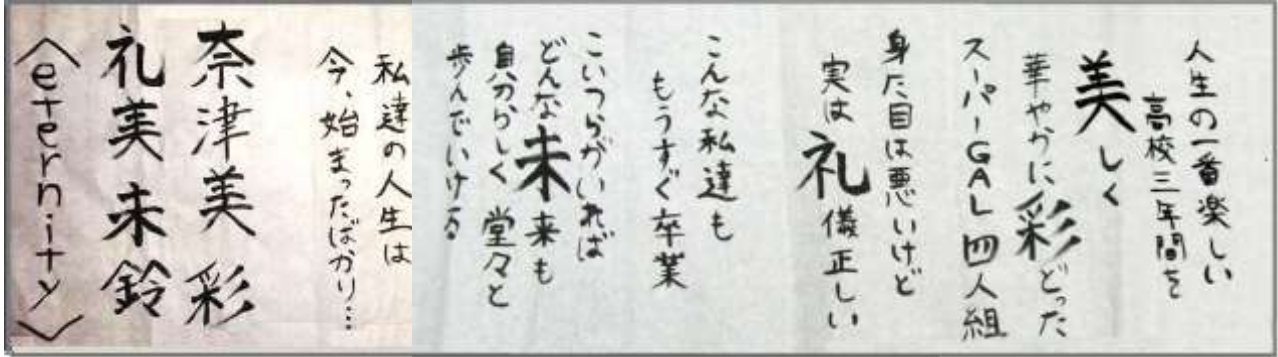 人生の一番楽しい
高校三年間を
美しく
華やかに彩どった
スーパーGAL四人組
身た目は悪いけど
実は礼儀正しい
こんな私達も
もうすぐ卒業
こいつらがいれば
どんな未来も
自分らしく堂々と
歩んでいける
私達の人生は
今、始まったばかり…
奈津美 彩
礼美 未鈴
〈eternity〉